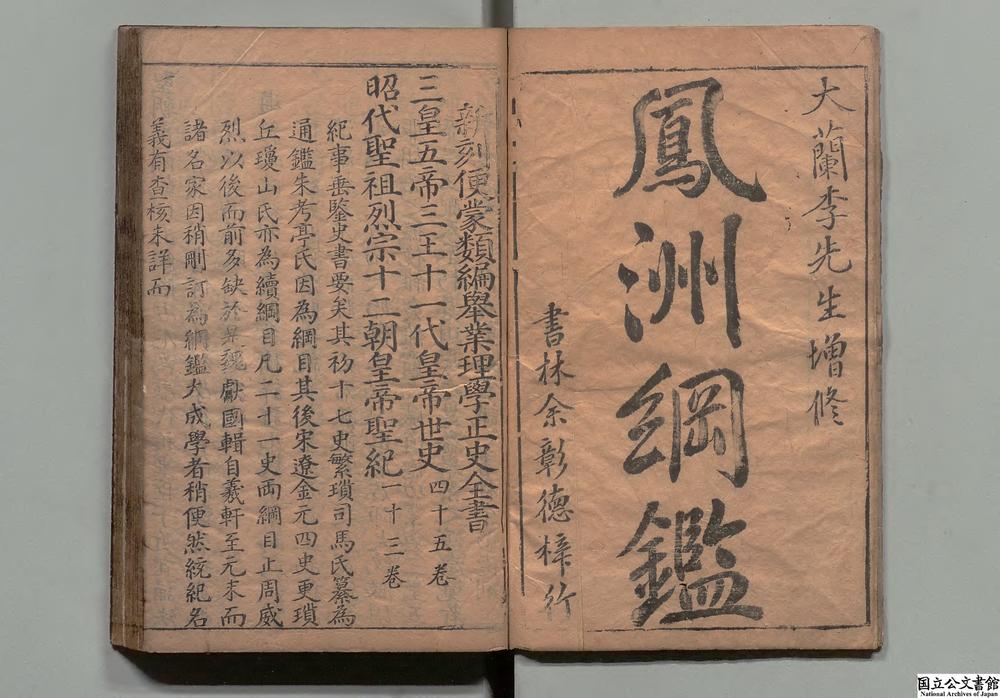 大蘭李先生增修
鳳洲綱鑑
書林余彰德梓行
新刻便蒙類編舉業理學正史全書
三皇五帝三王十一代皇帝世史四十五卷
昭代聖祖烈宗十二朝皇帝聖紀一十三卷
紀事垂鑒史書要矣其初十七史繁瑣司馬氏纂為
通鑑朱考亭氏因為綱目其後宋遼金元四史更瑣
丘瓊山氏亦為續綱目凡二十一史両綱目止周威
烈以後而前多缺於是魏獻國輯自羲軒至元末而
諸名家因稍刪訂為綱鑑大成學者稍便然統紀名
義有查核未詳而
国立公文書館
National Archives of Japan